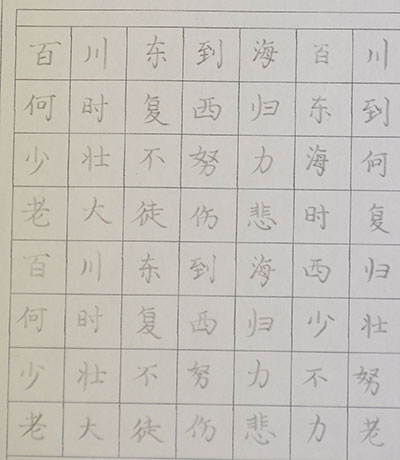 百川东到海百川
何时复西归东到
少壮不努力海何
老大徒伤悲时复
百川东到海西归
何时复西归少壮
少壮不努力不努
老大徒伤悲力老